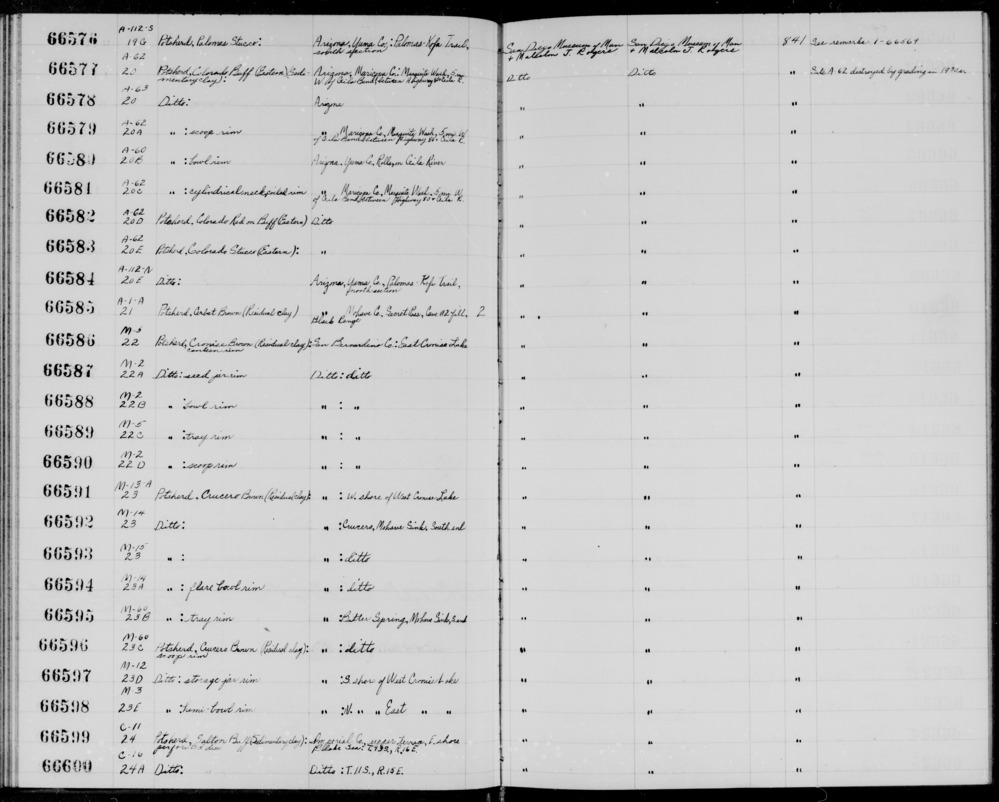 66576 A-112-S 19G Potsherd, Palomas Stucco: Arizona, Yuma Co.; Palomas-Kofa Trail, south section San Diego Museum of Man + Malcolm J. Rogers San Diego Museum of Man + Malcolm J. Rogers 841 See remarks 1-66569
66577 A-62 20 Potsherd, Colorado Buff (Eastern) (Sedimentary clay): Arizona, Maricopa Co.: Mesquite Wash, 5 mi. W of Gila Bend (between Highway 80 + Gila R. Ditto Ditto " Site A-62 destroyed by grading in
66578 A-63 20 Ditto: Arizona " " "
66579 A-62 20A " : scoop rim " Maricopa Co., Mesquite Wash, 5 mi. W of Gila Bend between Highway 80 + Gila R. " " "
66580 A-60 20B " : bowl rim Arizona, Yuma Co., Gila River " " "
66581 A-62 20C " : cylindrical neck rim " Maricopa Co., Mesquite Wash, 5 mi. W. of Gila Bend between Highway 80 + Gila R. " " "
66582 A-62 20D Potsherd, Colorado Red on Buff (Eastern) Ditto " " "
66583 A-62 20E Potsherd, Colorado Stucco (Eastern): " " " "
66584 A-112-N 20E Ditto: Arizona, Yuma Co., Palomas-Kofa Trail, north section " " "
66585 A-1-A 21 Potsherd, Cerbat Brown (Residual clay) " Mohave Co., Secret Pass, Cave #2 fill, Black Range 2 " " "
66586 M-3 22 Potsherd, Cronise Brown (Residual clay): canteen rim San Bernardino Co.: East Cronise Lake " " "
66587 M-2 22A Ditto: seed jar rim Ditto: ditto " " "
66588 M-2 22B " : bowl rim " : " " " "
66589 M-5 22C " : tray rim " : " " " "
66590 M-2 22D " : scoop rim " : " " " "
66591 M-13-A 23 Potsherd, Crucero Brown (Residual clay): " : W. shore of West Cronise Lake " " "
66592 M-14 23 Ditto: " : Crucero, Mohave Sink, South end " " "
66593 M-15 23 " : " : ditto " " "
66594 M-14 23A " : flare bowl rim " : ditto " " "
66595 M-60 23B " : tray rim " : Bitter Spring, Mohave Sink, " " "
66596 M-60 23C Potsherd, Crucero Brown (Residual clay): scoop rim " : ditto " " "
66597 M-12 23D Ditto: storage jar rim " : S. shore of West Cronise Lake " " "
66598 M-3 23E " : hemi-bowl rim " : N. " " East " " " " "
66599 C-11 24 Potsherd, Salton Buff (Sedimentary clay): Imperial Co., upper terrace, E. shore R.16E. " " "
66600 C-16 24A Ditto: Ditto: T.11S., R.15E. " " "